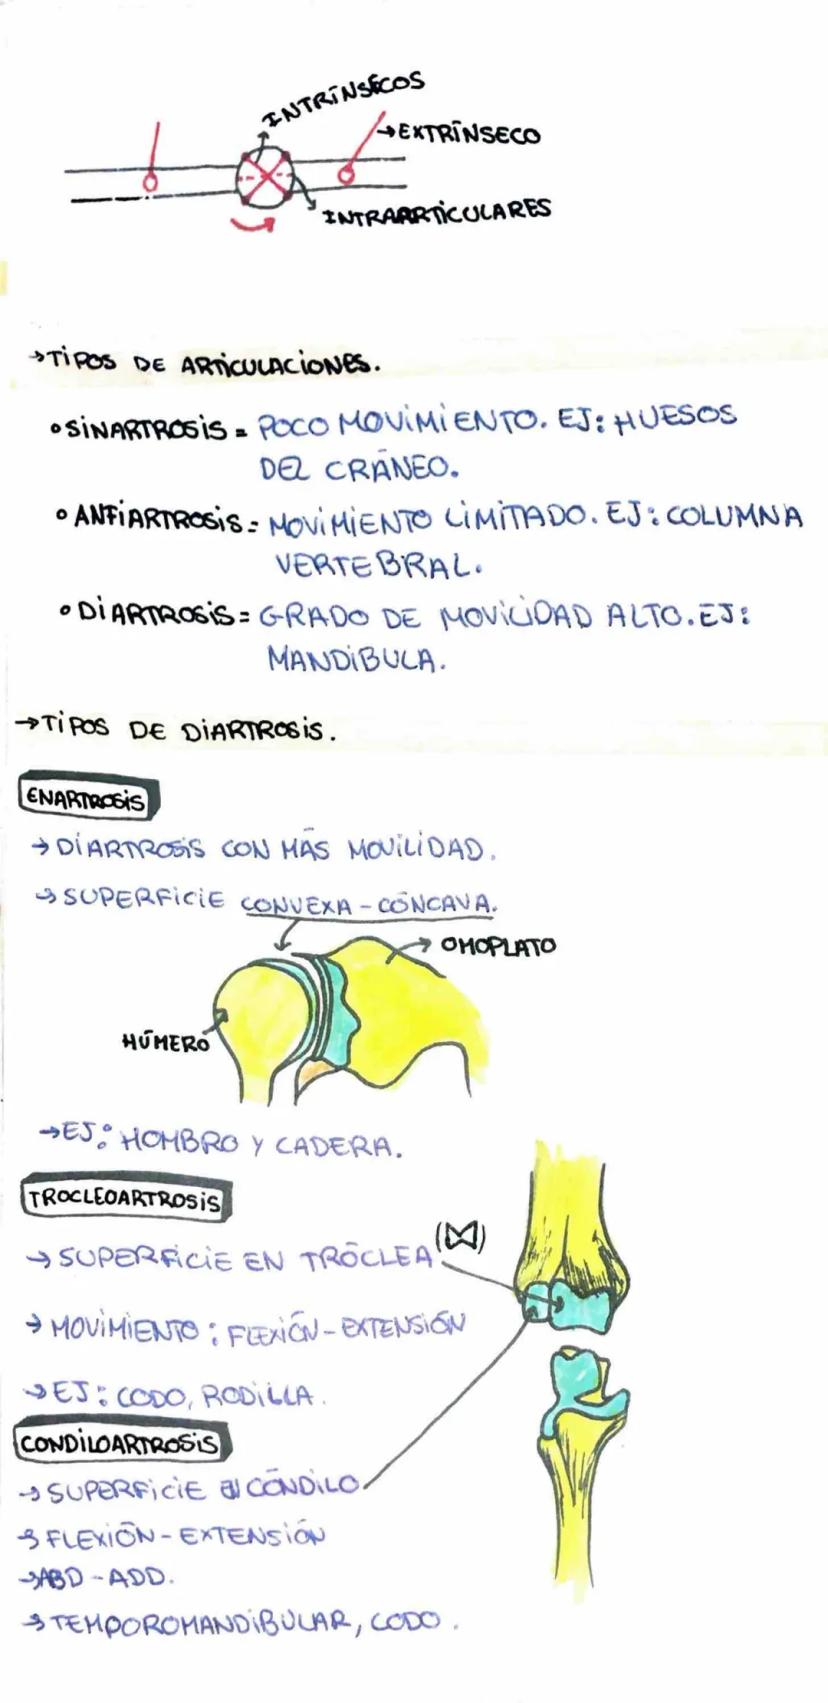 INTRÍNSECOS
→EXTRÍNSECO
INTRAARTICULARES
→TIPOS DE ARTICULACIONES.
• SINARTROSIS = POCO MOVIMIENTO. EJ: HUESOS
DEL CRÁNEO.
• ANFIARTROSIS = MOVIMIENTO LIMITADO. EJ: COLUMNA
VERTEBRAL.
• DIARTROSIS = GRADO DE MOVILIDAD ALTO. EJ:
MANDÍBULA.
→TIPOS DE DIARTROSIS.
ENARTROSIS
→ DIARTROSIS CON MÁS MOVILIDAD.
→ SUPERFICIE CONVEXA - CÓNCAVA.
OMOPLATO
HÚMERO
→EJ: HOMBRO Y CADERA.
TROCLEOARTROSIS
→ SUPERFICIE EN TRÓCLEA
→ MOVIMIENTO: FLEXIÓN - EXTENSIÓN
→ EJ: CODO, RODILLA.
CONDILOARTROSIS
→ SUPERFICIE EN CÓNDILO
→ FLEXIÓN - EXTENSIÓN
→ ABD - ADD.
→ TEMPOROMANDIBULAR, CODO.